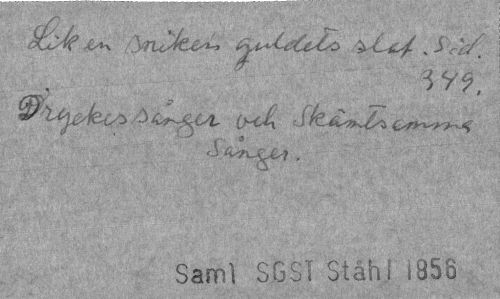 Lik en sniken guldets slaf. Sid.
349.
Dryckessånger och Skämtsamma
Sånger.
Saml SGST Ståhl 1856